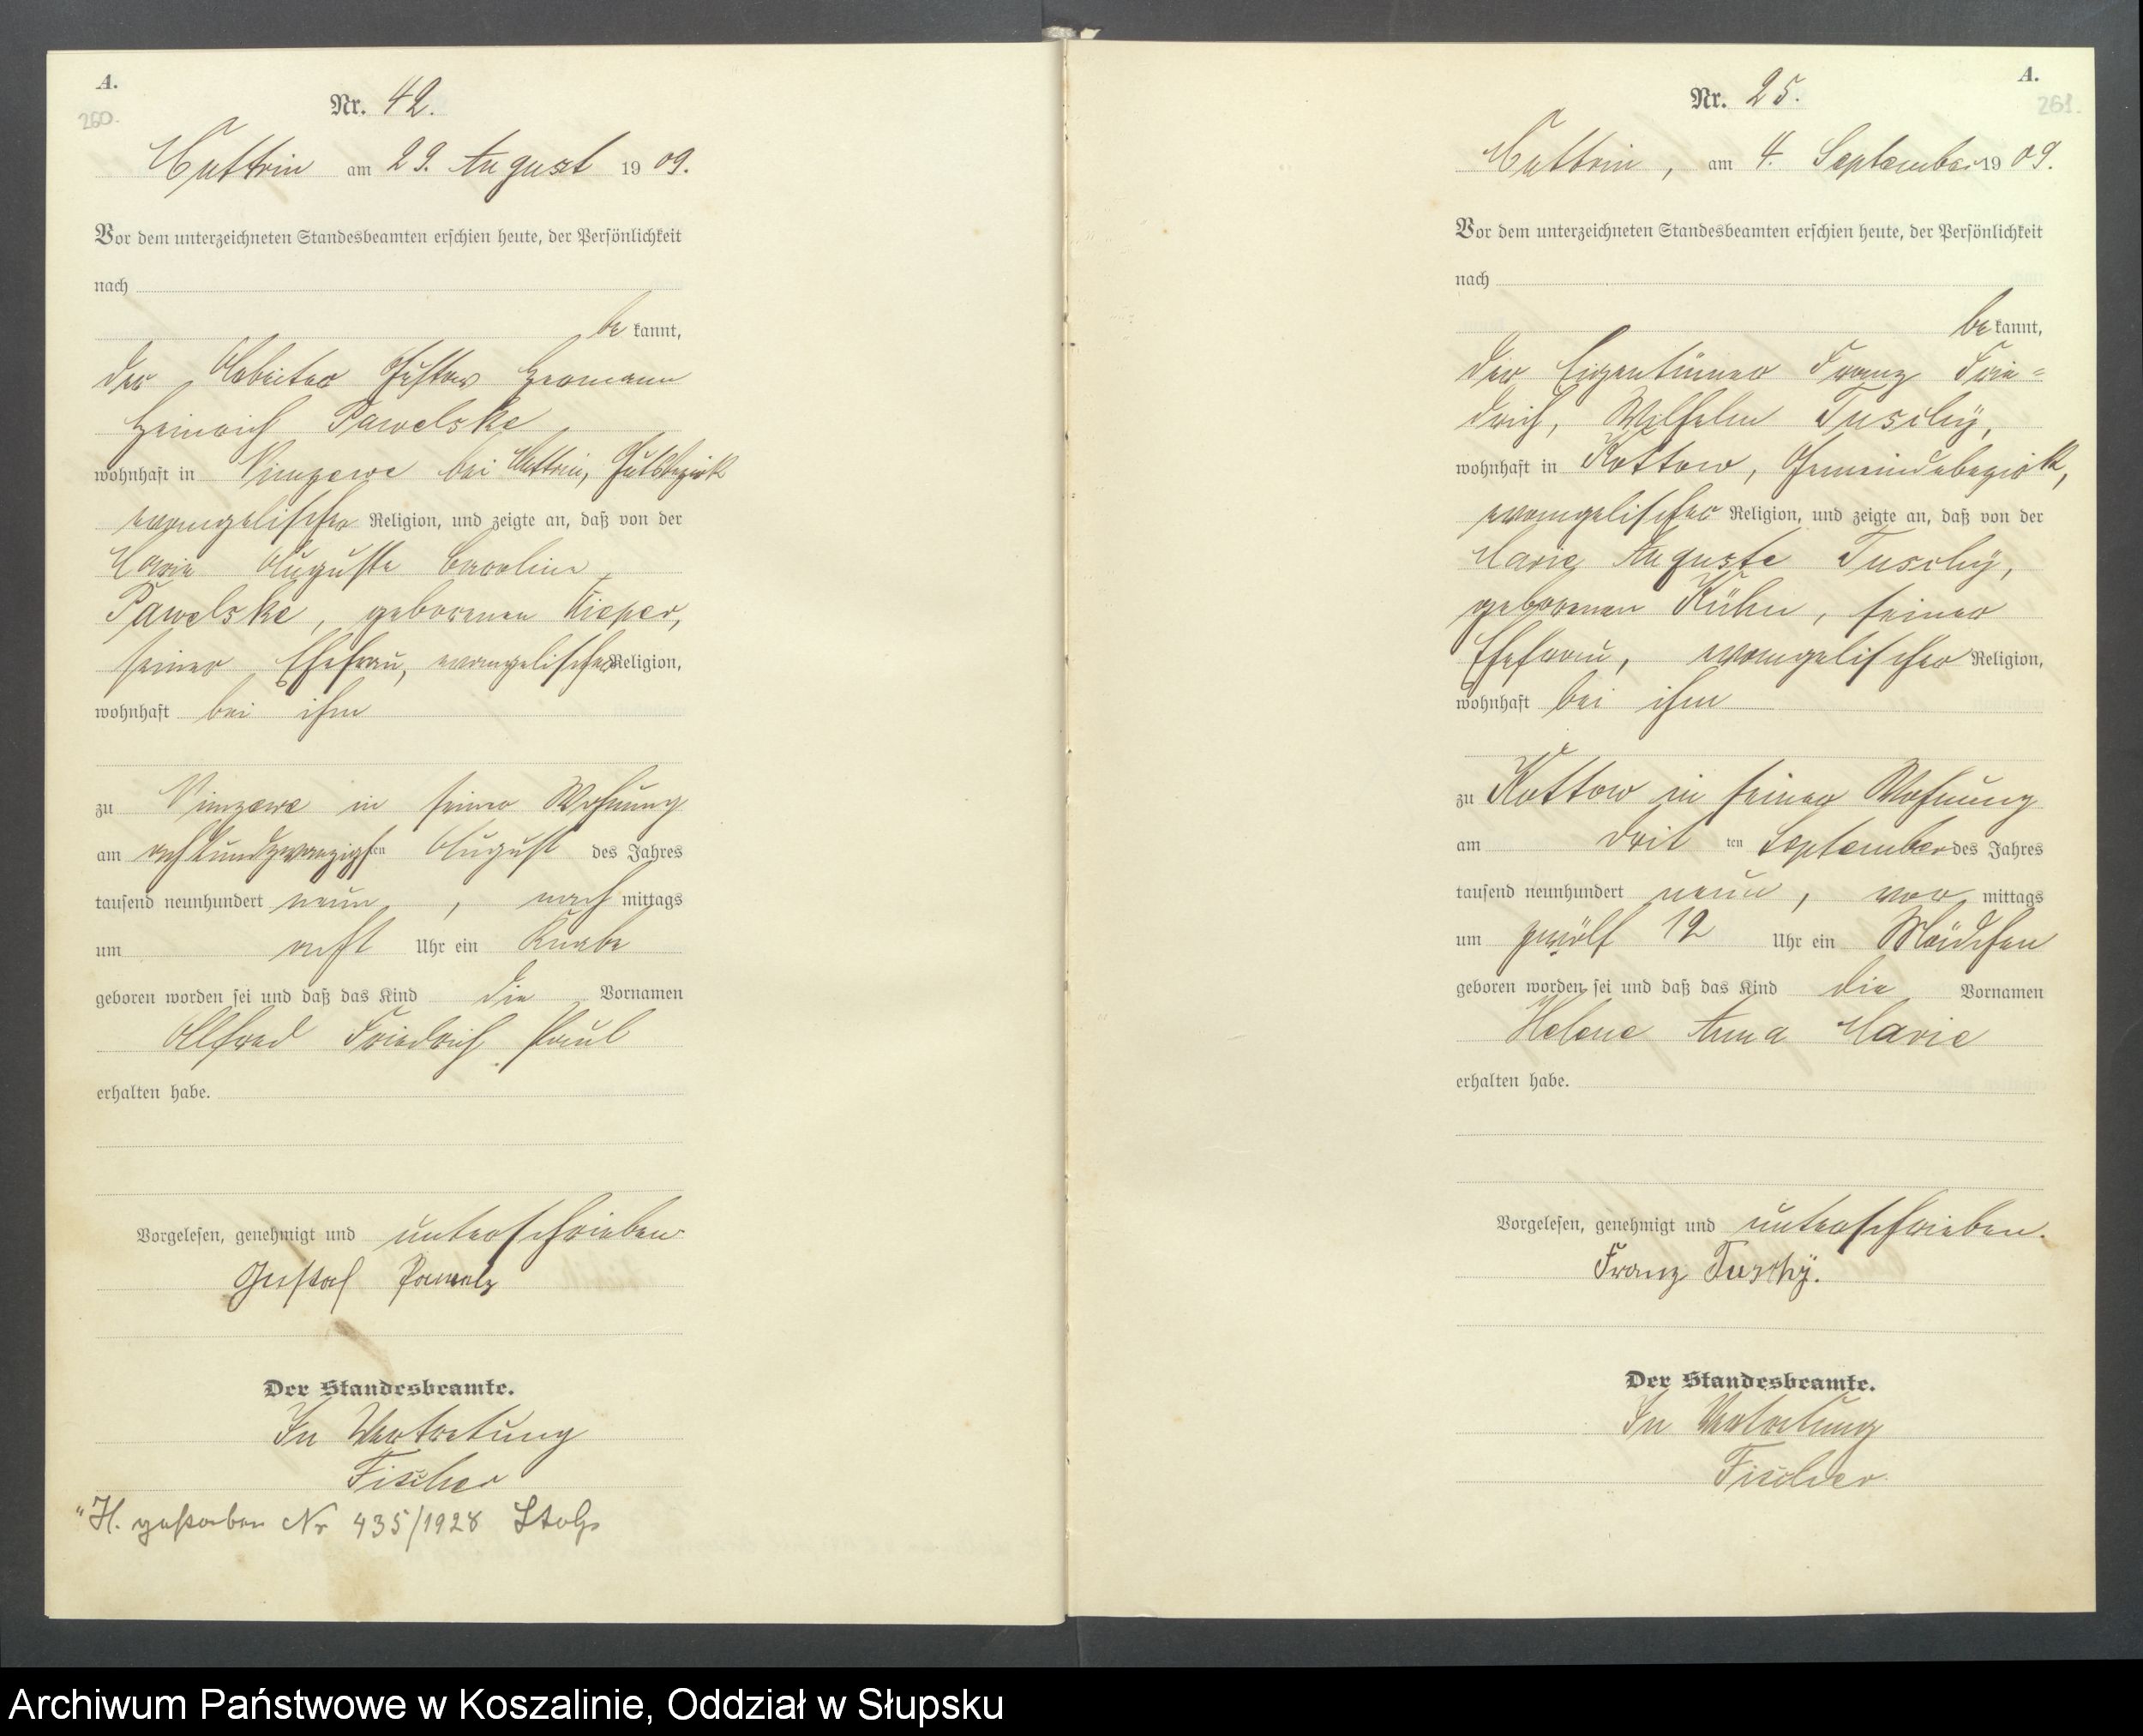 A.
260.
Nr. 42.
Muttrin am 29. August 1909.
Vor dem unterzeichneten Standesbeamten erschien heute, der Persönlichkeit
nach
be kannt,
der Arbeiter Gustav Hermann
Heinrich Pawelske
wohnhaft in Vimzowe bei Muttrin, Gutsbezirk
evangelischer Religion, und zeigte an, daß von der
Marie Auguste Caroline
Pawelske, geborenen Kieper,
seiner Ehefrau, evangelischer Religion,
wohnhaft bei ihm
zu Vimzowe in seiner Wohnung
am achtundzwanzigsten August des Jahres
tausend neunhundert neun, nach mittags
um acht Uhr ein Knabe
geboren worden sei und daß das Kind die Vornamen
Alfred Friedrich Paul
erhalten habe.
Vorgelesen, genehmigt und unterschrieben
Gustaf
Der Standesbeamte.
In Vertretung
Fischer
"H. gestorben Nr 435/1928 Stolp
A.
261.
Nr. 25.
Muttrin, am 4. September 1909.
Vor dem unterzeichneten Standesbeamten erschien heute, der Persönlichkeit
nach
be kannt,
der Eigentümer Franz Frie=
drich, Wilhelm Tuschÿ,
wohnhaft in Kottow, Gemeindebezirk,
evangelischer Religion, und zeigte an, daß von der
Marie Auguste Tuschÿ,
geborenen Kühn, seiner
Ehefrau, evangelischer Religion,
wohnhaft bei ihm
zu Kottow in seiner Wohnung
am drit ten September des Jahres
tausend neunhundert neun, vor mittags
um zwölf 12 Uhr ein Mädchen
geboren worden sei und daß das Kind die Vornamen
Helene Anna Marie
erhalten habe.
Vorgelesen, genehmigt und unterschrieben.
Franz Tuschÿ.
Der Standesbeamte.
In Vertretung
Fischer
Archiwum Państwowe w Koszalinie, Oddział w Słupsku